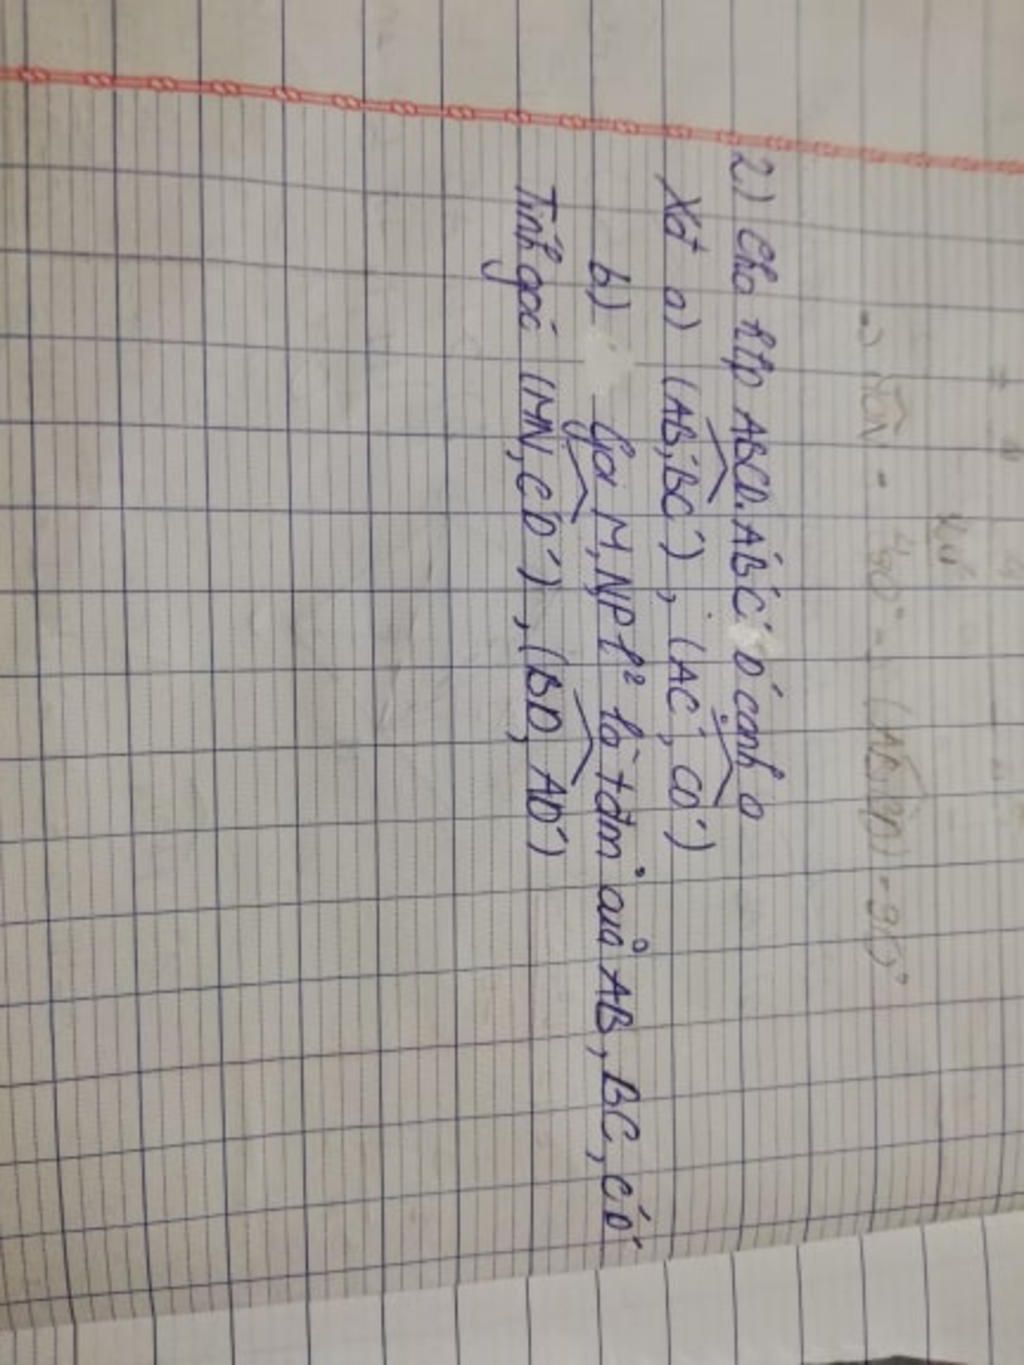 2) Cho hlp ABCD.A'B'C'D' cạnh a
Xđ a) (AB', BC'), (AC', CD')
b) Gọi M, N, P lº là tđm của AB, BC, C'D'
Tính góc (MN, C'D'), (BD, AD')
= 90° - (AB, BD) = 90°